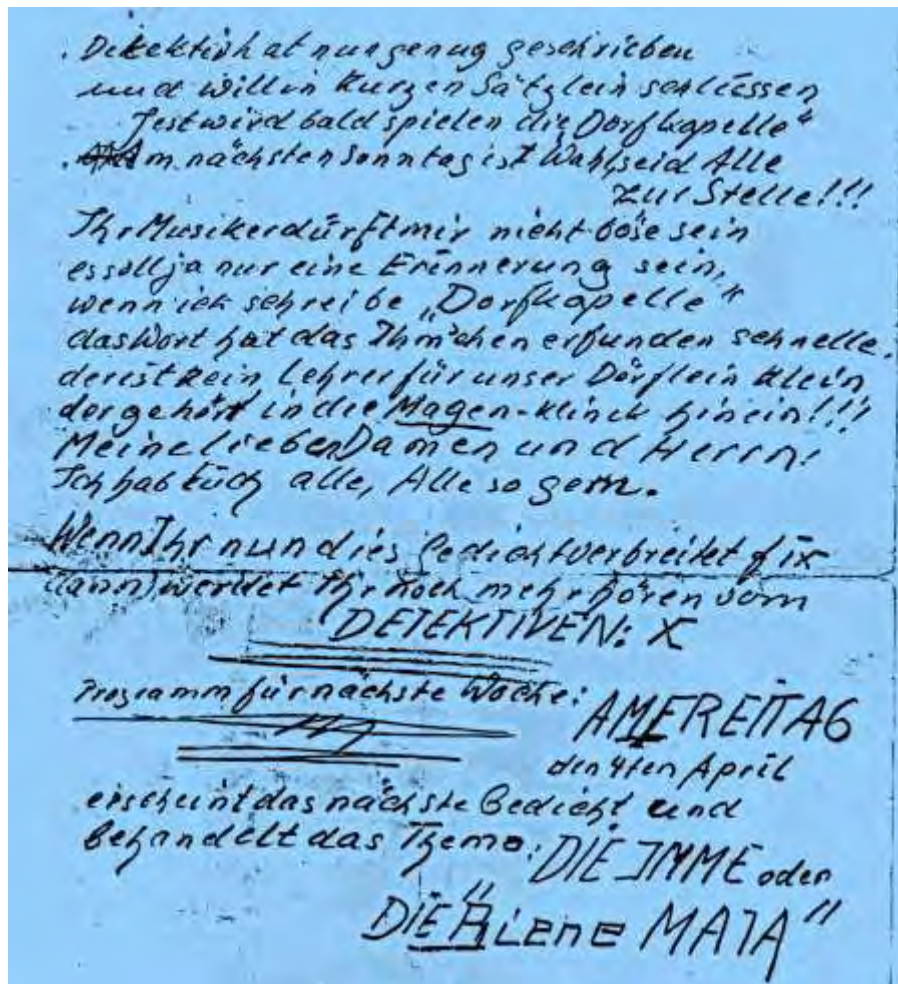 Detektiv hat nun genug geschrieben
und will in kurzen Sätzlein schliessen
Jest wird bald spielen die „Dorfkapelle“
Am nächsten Sonntag ist Wahl, seid Alle
zur Stelle!!!
Ihr Musiker dürft mir nicht böse sein
es soll ja nur eine Erinnerung sein,
wenn ich schreibe „Dorfkapelle“
das Wort hat das Ihmchen erfunden schnelle.
der ist kein Lehrer für unser Dörflein klein
der gehört in die Magen-klinik hinein!!!
Meine lieben Damen und Herrn!
Ich hab Euch alle, Alle so gern.
Wenn Ihr nun dies Gedicht verbreitet fix
dann werdet Ihr noch mehr hören vom
DETEKTIVEN: X
Programm für nächste Woche:
AM FREITAG
den 4ten April
erscheint das nächste Gedicht und
behandelt das Thema: DIE IMME oder
DIE „Biene MAJA“